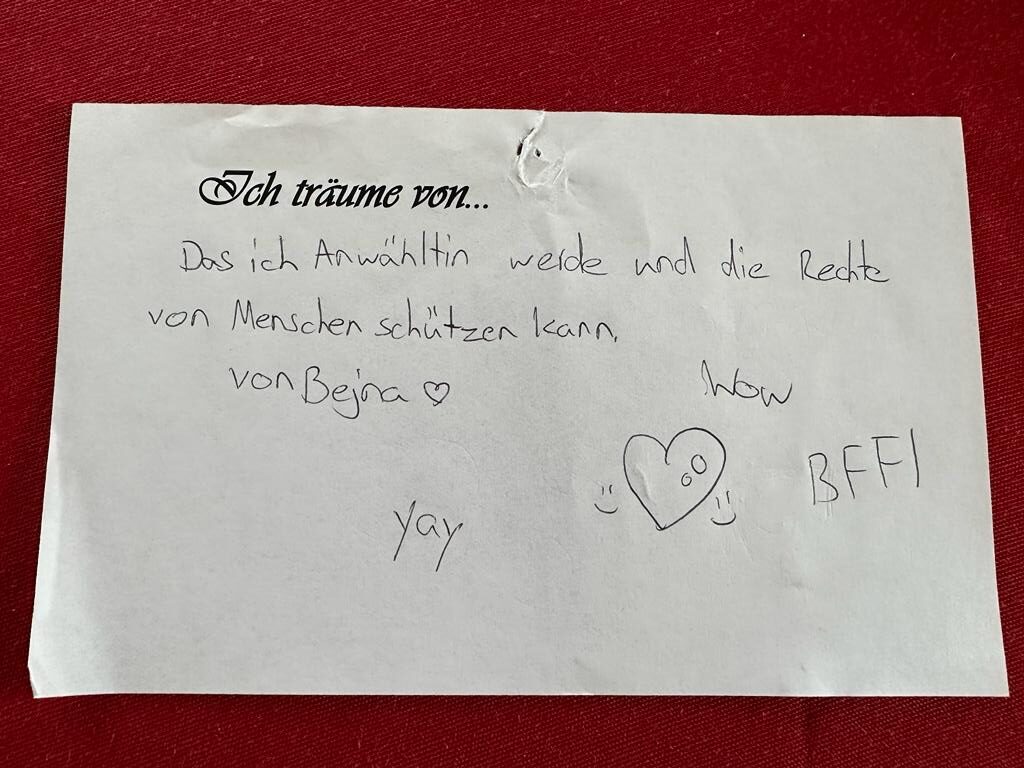 Ich träume von...
Das ich Anwähltin werde und die Rechte
von Menschen schützen kann.
von Bejna ♡
Wow
BFF!
yay